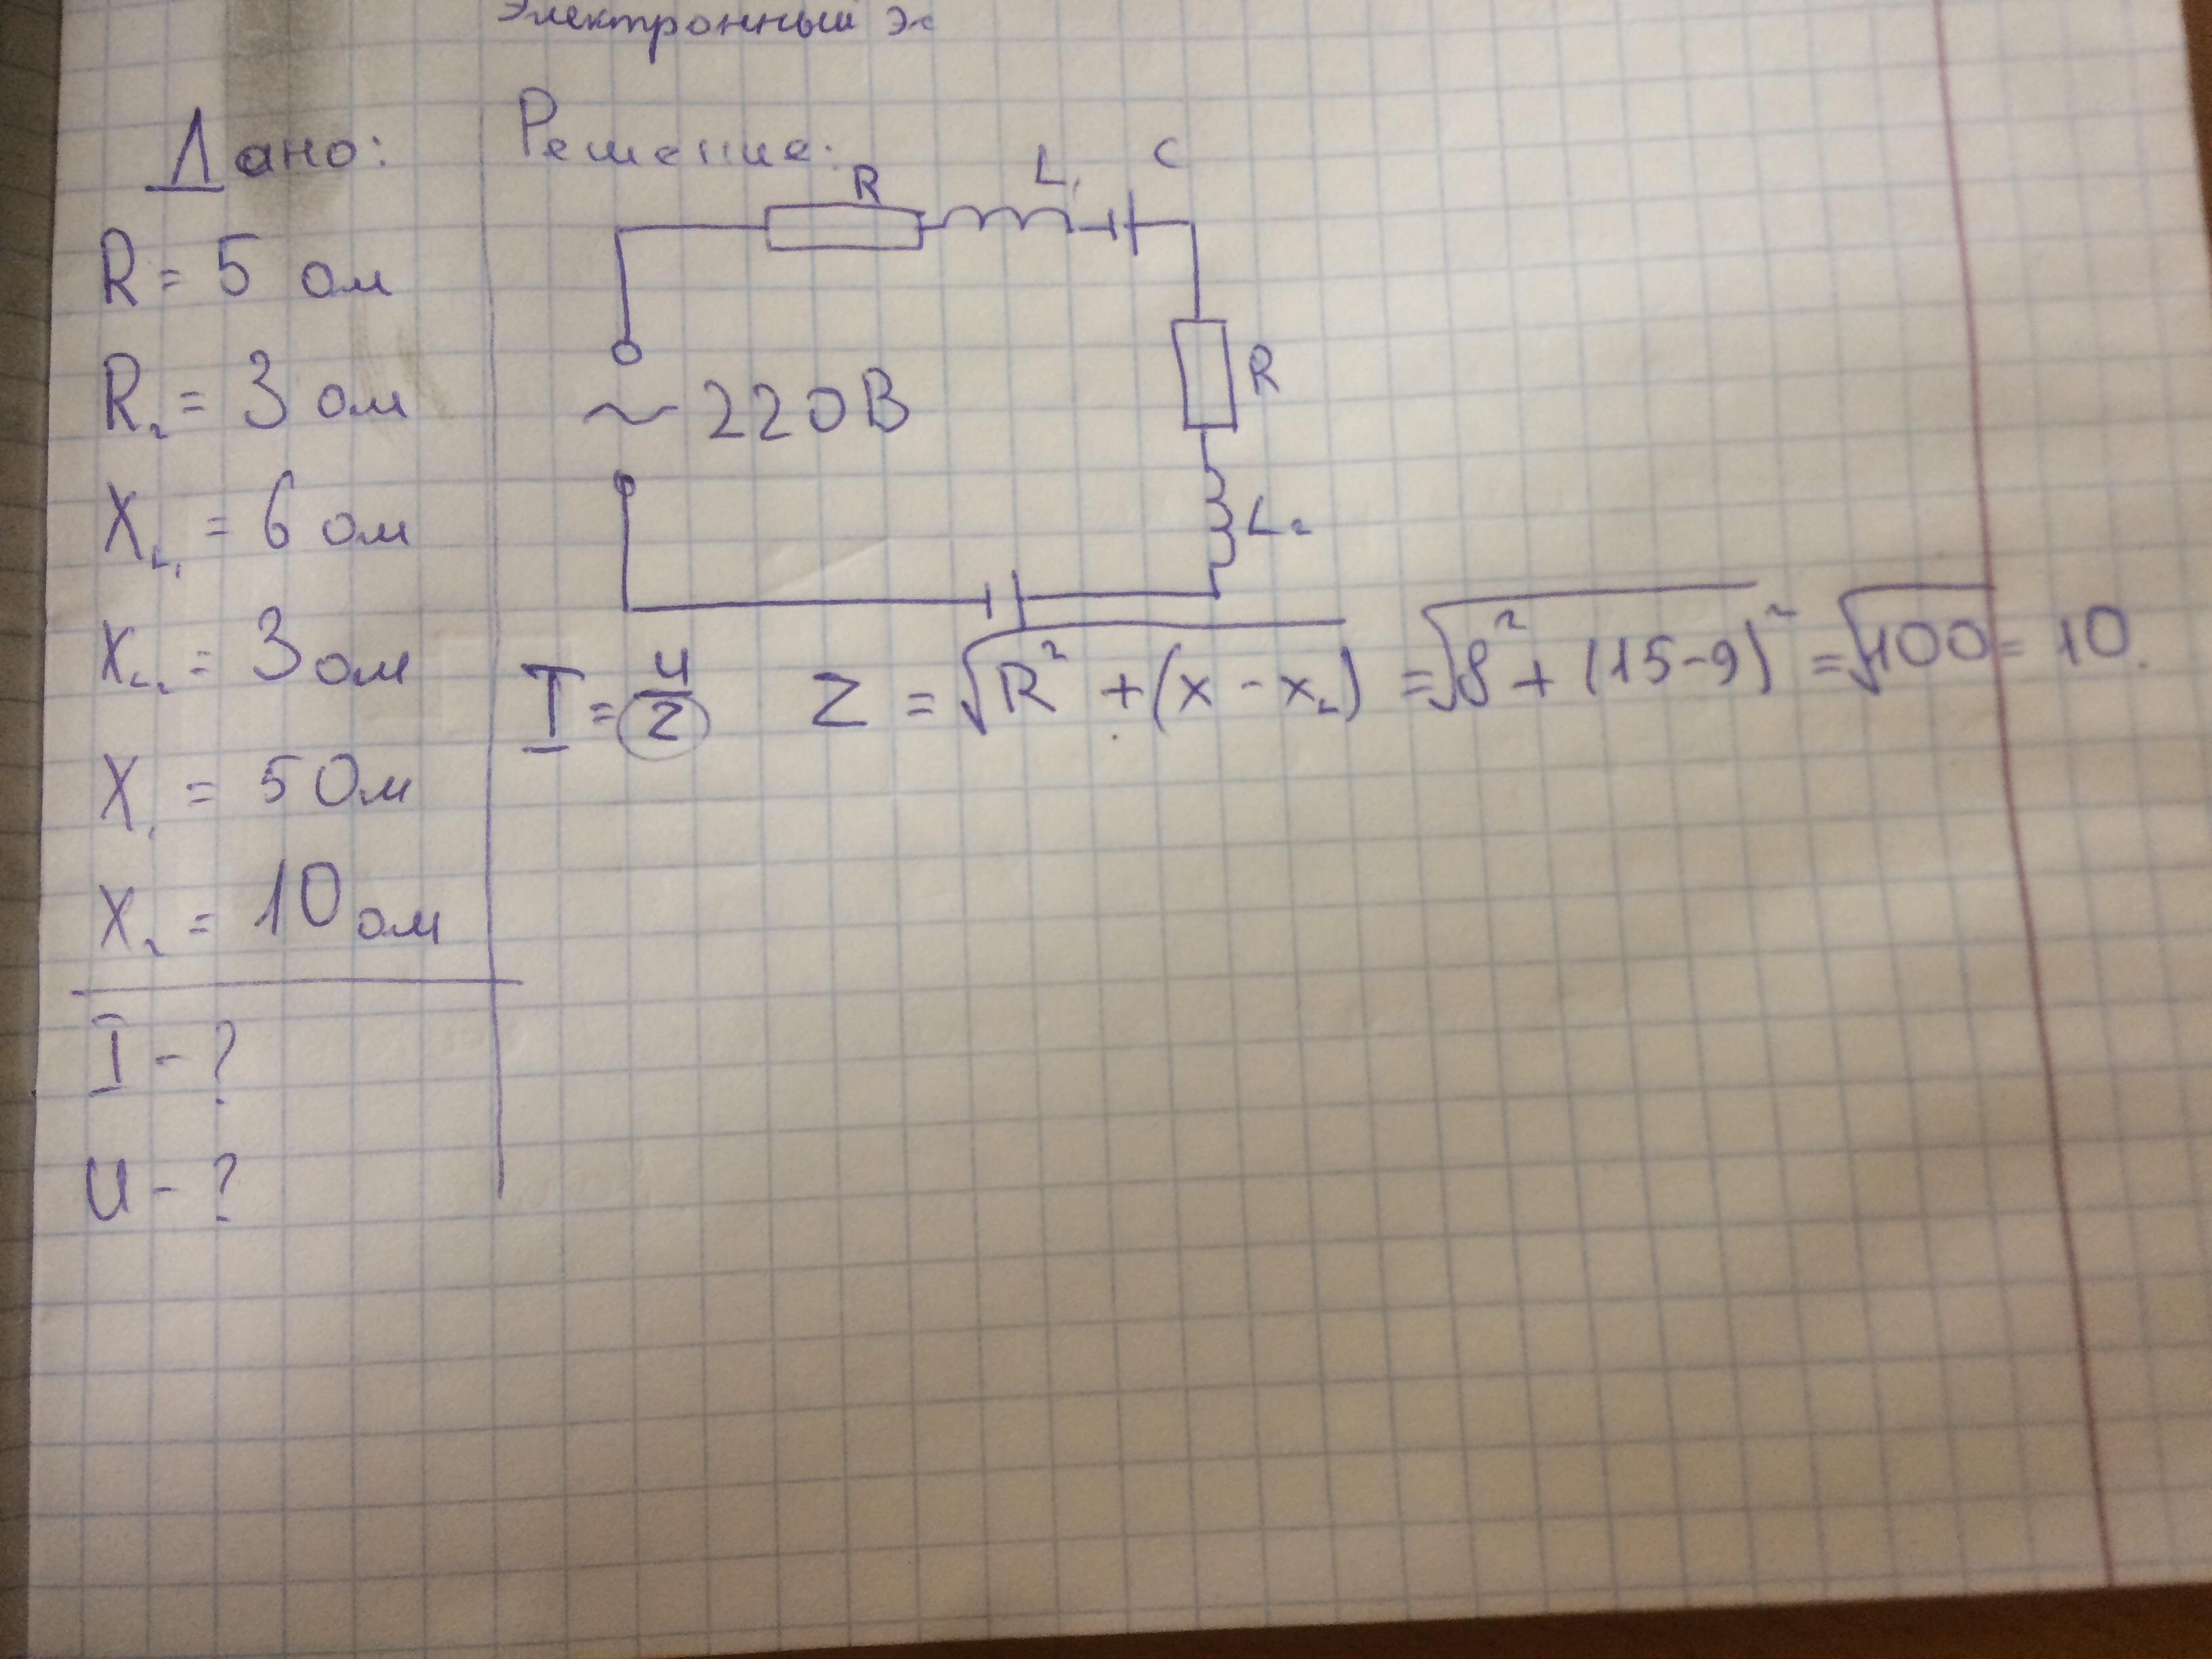 Электронный эк
Дано:
R = 5 ом
R₂ = 3 ом
X_L₁ = 6 ом
X_L₂ = 3 ом
X₁ = 5 Ом
X₂ = 10 ом
I - ?
U - ?
Решение:
R L₁ C
R
~ 220В
L₂
I = U/Z Z = √R² + (x - x_L) = √8² + (15-9)² = √100 = 10.